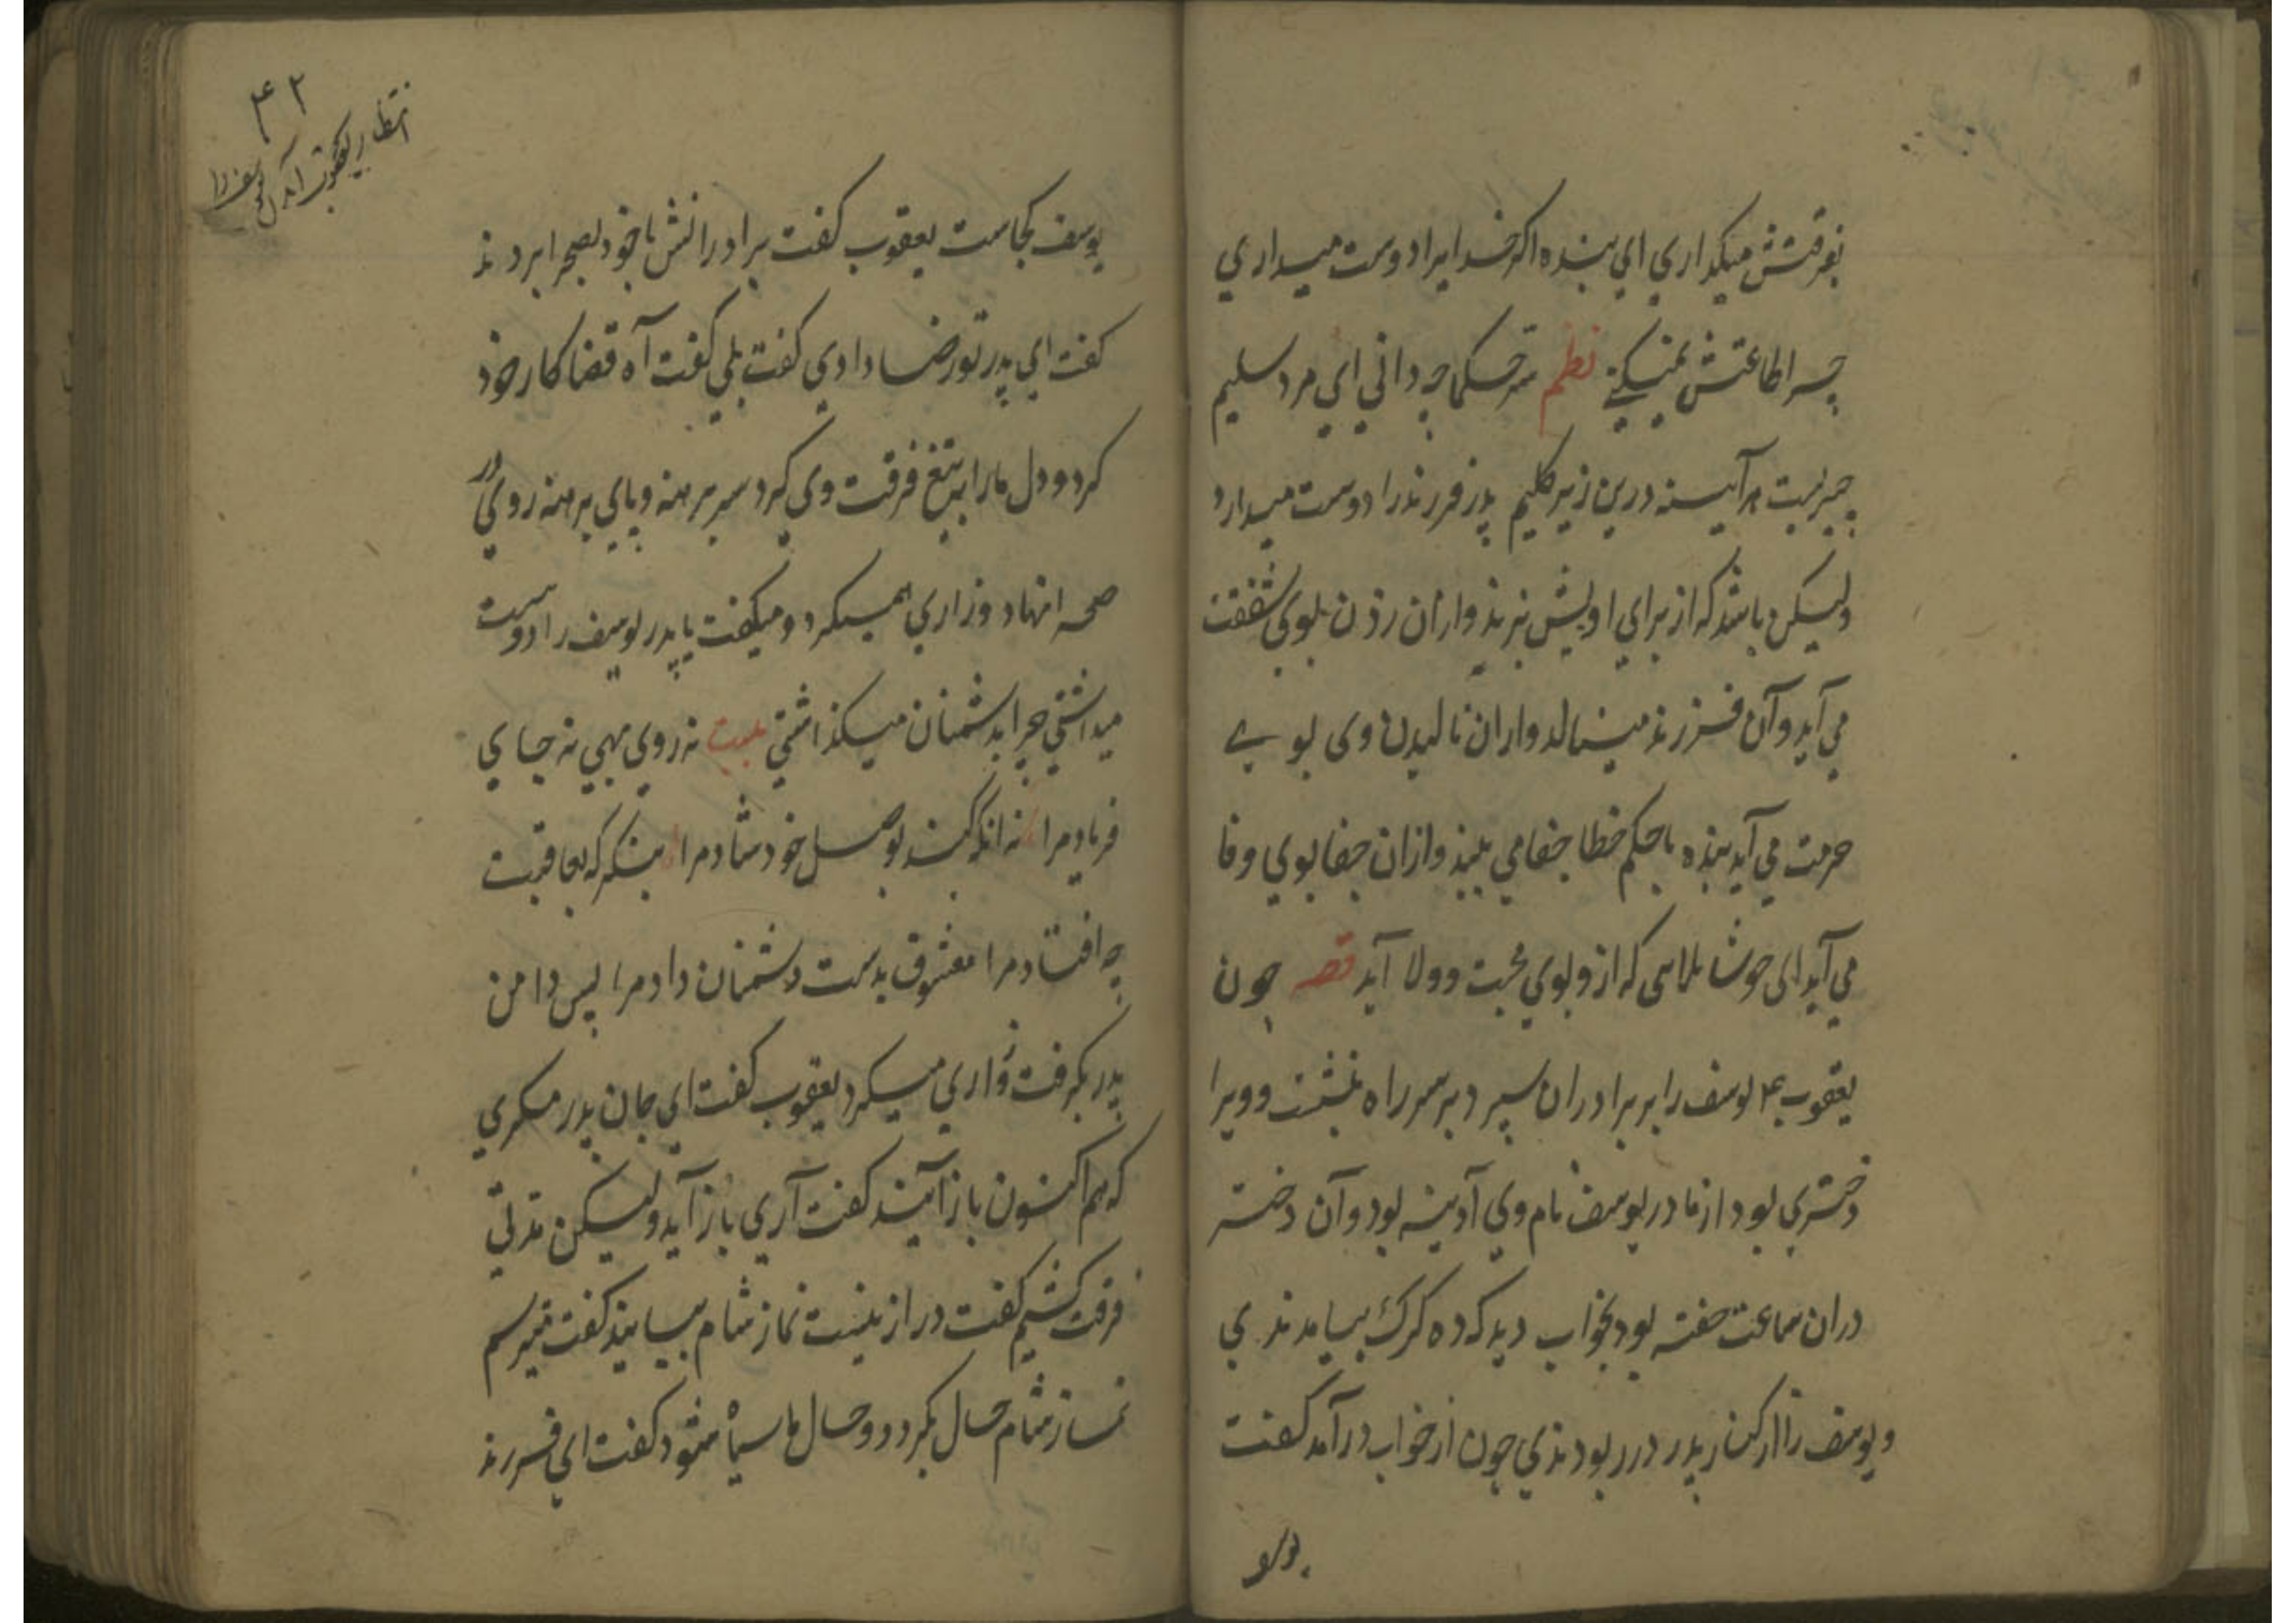 بفرقتش میکداری ای بنده اکر خدایرا دوست میداری
چرا طاعتش نمیکنی نظم چه دانی ای مرد سلیم
هر آینه درین زیر کلیم پدر فرزند را دوست میدارد
ولیکن باشد که از برای اویش بزند وازان زدن بوی شفقت
می آید وآن فرزند مینالد وازان نالیدن وی بوی
حرمت می آید بنده باحکم خطا جفا می بیند وازان جفا بوی وفا
می آید ای خوشا بلاسی که ازو بوی محبت وولا آید قصه چون
یعقوب ع یوسف را بربرادران سپرد برسر راه بنشست وویرا
دختری بود از مادر یوسف نام وی آدینه بود وآن دختر
دران ساعت خفته بود بخواب دید که ده کرک بیامدندی
ویوسف را از کنار پدر در ربودندی چون از خواب درآمد کفت
یوسف
۴۲
انتظار یعقوب آمدن یوسف را
یوسف کجاست یعقوب کفت برادرانش باخود بصحرا بردند
کفت ای پدر تو رضا دادی کفت بلی کفت آه قضا کار خود
کرد ودل مارا بتیغ فرقت وی کرد سر برهنه وپای برهنه روی در
صحرا نهاد وزاری همیکرد ومیکفت یا پدر یوسف را دوست
میداشتی چرا بدشمنان میکذاشتی بیت نه روی مهی نه جای
فریاد مرا نه انکه کند بوصل خود شاد مرا بنکر که بعاقبت
چه افتاد مرا معشوق بدست دشمنان داد مرا پس دامن
پدر بکرفت وزاری میکرد یعقوب کفت ای جان پدر مکری
که هم اکنون باز آیند کفت آری باز آید ولیکن مدتی
فرقت کشیم کفت دراز نیست نماز شام بیایند کفت میترسم
نماز شام حال بکردد وحال ما سیاه شود کفت ای فرزند